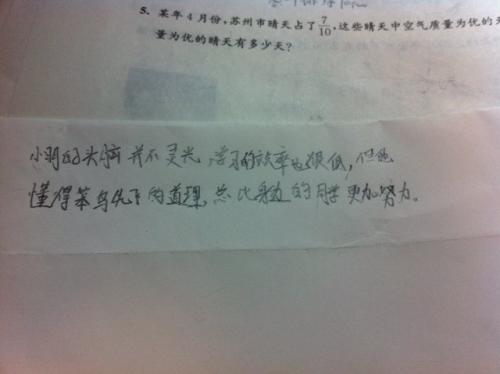 5. 某年4月份，苏州市晴天占了7/10，这些晴天中空气质量为优的
量为优的晴天有多少天？
小明的头脑并不灵光，学习的效率也很低，但他
懂得笨鸟先飞的道理，总比身边的同学更加努力。